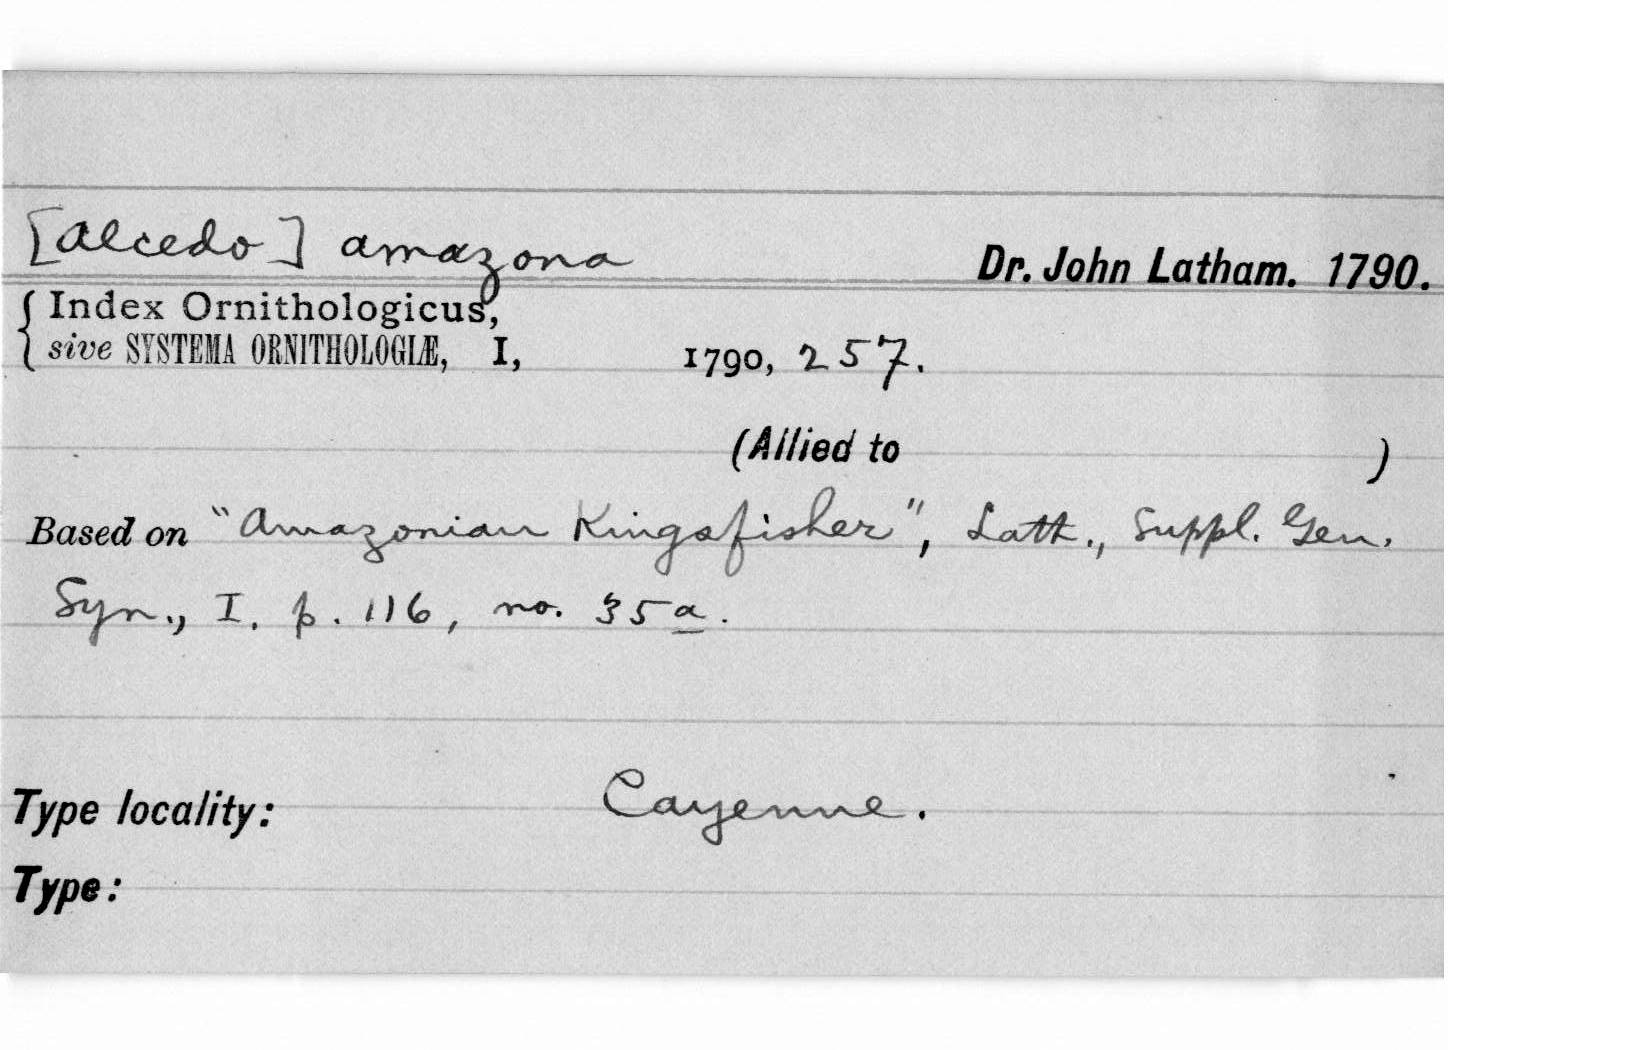 [Alcedo] amazona
Dr. John Latham. 1790.
Index Ornithologicus,
sive SYSTEMA ORNITHOLOGIÆ, I, 1790, 257.
(Allied to )
Based on "Amazonian Kingsfisher", Lath., Suppl. Gen.
Syn., I. p. 116, no. 35a.
Type locality: Cayenne.
Type: